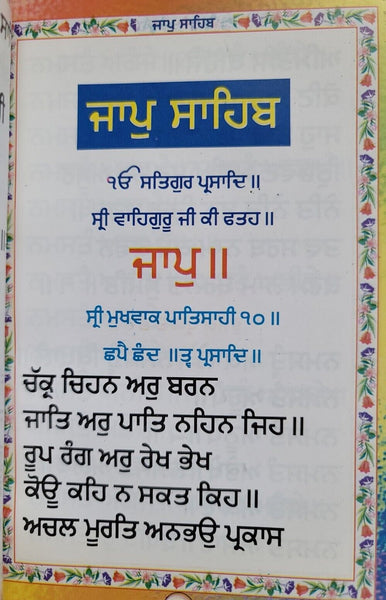 ਜਾਪੁ ਸਾਹਿਬ
ਜਾਪੁ ਸਾਹਿਬ
ੴ ਸਤਿਗੁਰ ਪ੍ਰਸਾਦਿ॥
ਸ੍ਰੀ ਵਾਹਿਗੁਰੂ ਜੀ ਕੀ ਫਤਹ॥
ਜਾਪੁ॥
ਸ੍ਰੀ ਮੁਖਵਾਕ ਪਾਤਿਸਾਹੀ ੧੦॥
ਛਪੈ ਛੰਦ ॥ਤ੍ਵ ਪ੍ਰਸਾਦਿ॥
ਚੱਕ੍ਰ ਚਿਹਨ ਅਰੁ ਬਰਨ
ਜਾਤਿ ਅਰੁ ਪਾਤਿ ਨਹਿਨ ਜਿਹ॥
ਰੂਪ ਰੰਗ ਅਰੁ ਰੇਖ ਭੇਖ
ਕੋਊ ਕਹਿ ਨ ਸਕਤ ਕਿਹ॥
ਅਚਲ ਮੂਰਤਿ ਅਨਭਉ ਪ੍ਰਕਾਸ